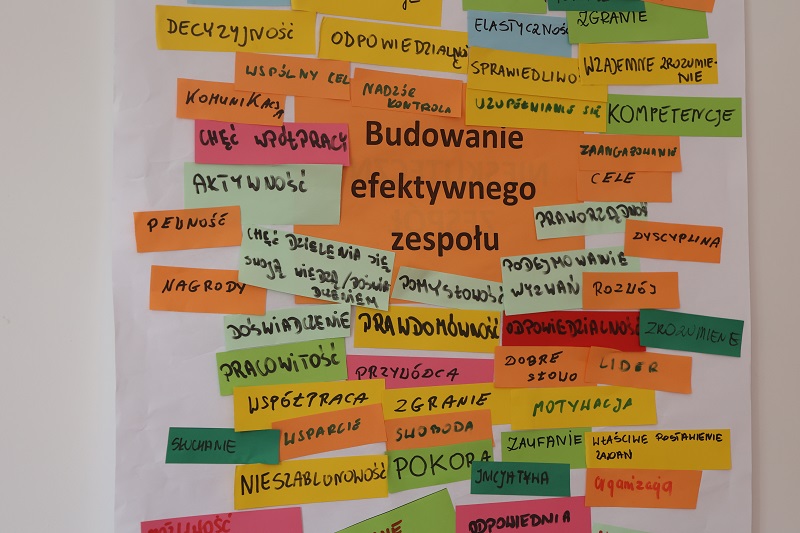 DECYZYJNOŚĆ
ODPOWIEDZIALNOŚ
ELASTYCZNOŚĆ
ZGRANIE
WSPÓLNY CEL
NADZÓR
KONTROLA
SPRAWIEDLIWO
WZAJEMNE ZROZUMIE-
NIE
KOMUNIKACJ
UZUPEŁNIANIE SIĘ
KOMPETENCJE
CHĘĆ WPÓŁPRACY
Budowanie
efektywnego
zespołu
ZAANGAŻOWANIE
AKTYWNOŚĆ
CELE
PEWNOŚĆ
PRAWORZĄDNOŚ
DYSCYPLINA
CHĘĆ DZIELENIA SIĘ
SWOJĄ WIEDZĄ/DOŚWIA
DCZENIEM
NAGRODY
POMYSŁOWOŚĆ
PODEJMOWANIE
WYZWAŃ
ROZWÓJ
DOŚWIADCZENIE
PRAWDOMÓWNOŚĆ
ODPOWIEDZIALNOŚĆ
ZROZUMIENIE
PRACOWITOŚĆ
PRZYWÓDCA
DOBRE
SŁOWO
LIDER
WSPÓŁPRACA
ZGRANIE
MOTYWACJA
SŁUCHANIE
WSPARCIE
SWOBODA
ZAUFANIE
WŁAŚCIWE POSTAWIENIE
ZADAŃ
NIESZABLONOWOŚĆ
POKORA
INICJATYWA
organizacja
ODPOWIEDNIA